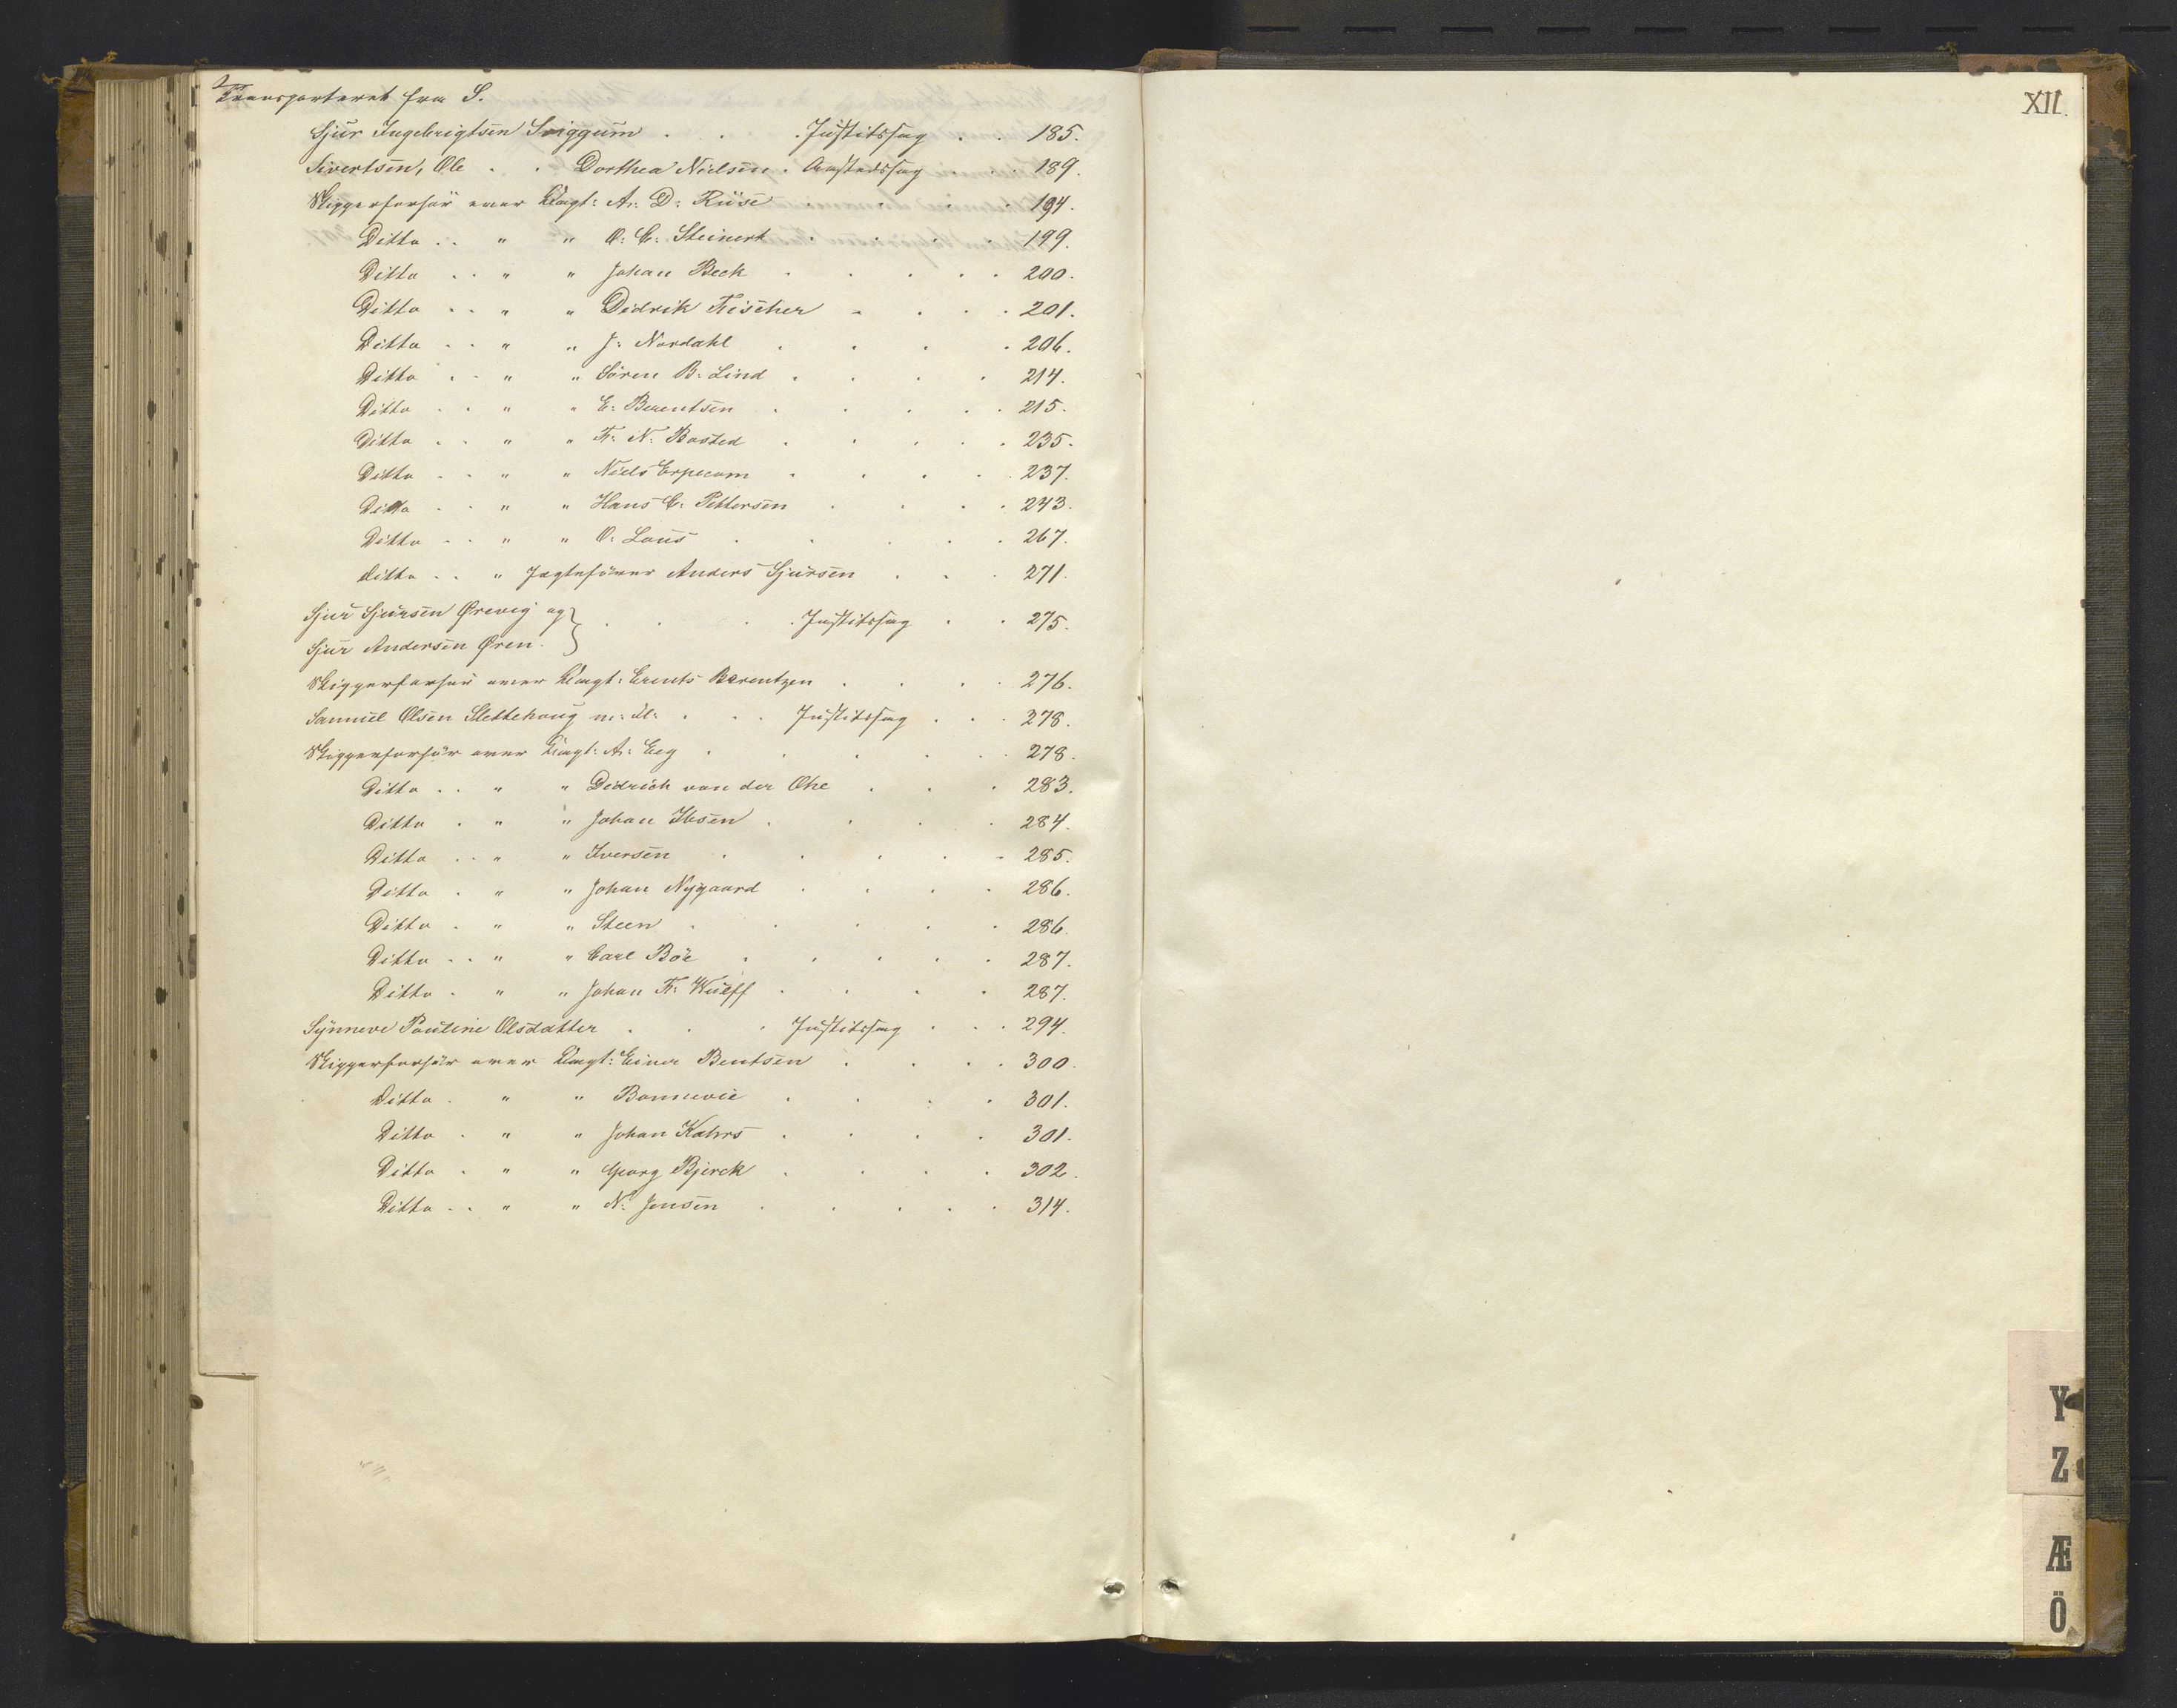 Transporteret fra S.
Sjur Ingebrigtsen Sviggum . . . Justitssag . . 185.
Sivertsen, Ole . . Dorthea Nielsen . Aastedssag . . 189.
Skipperforhör over Capt: A: D: Rüse . . . . 194.
Ditto . . " " O: C: Steinert . . . . 199.
Ditto . . " " Johan Beck . . . . . 200.
Ditto . . " " Didrik Fischer . . . . 201.
Ditto . . " " J: Nordahl . . . . 206.
Ditto . . " " Sören B: Lind . . . . 214.
Ditto . . " " E: Berentsen . . . . . 215.
Ditto . . " " Fr: N: Bosted . . . . . 235.
Ditto . . " " Niels Erpecom . . . . . 237.
Ditto . . " " Hans C: Pettersen . . . . 243.
Ditto . . " " O: Lous . . . . . 267.
ditto . . " Jagtefører Anders Sjursen . . . 271.
Sjur Sjursen Ørevig og } . . . Justitssag . . 275.
Sjur Andersen Øren.
Skipperforhör over Capt: Berentzen . . . . 276.
Samuel Olsen Slettehoug m: fl: . . . Justitssag . . . 278.
Skipperforhör over Capt: A: Eeg . . . . . 278.
Ditto . . " " Didrich von der Ohe . . . 283.
Ditto . " " Johan Ibsen . . . . 284.
Ditto . . " " Iversen . . . . . 285.
Ditto . " " Johan Nygaard . . . . 286.
Ditto . " " Steen . . . . . 286.
Ditto . . " " Carl Böe . . . . . 287.
Ditto . " " Johan Fr: Wulff . . . . 287.
Synneve Pauline Olsdatter . . . Justitssag . . . 294.
Skipperforhör over Capt: Einer Bentsen . . . . 300.
Ditto . " " Bonnevie . . . . 301.
Ditto . " " Johan Kahrs . . . . 301.
Ditto . " " Georg Bjerck . . . . 302.
Ditto . . " " N: Jensen . . . . . 314.
XII.
Y
Z
Æ
Ö